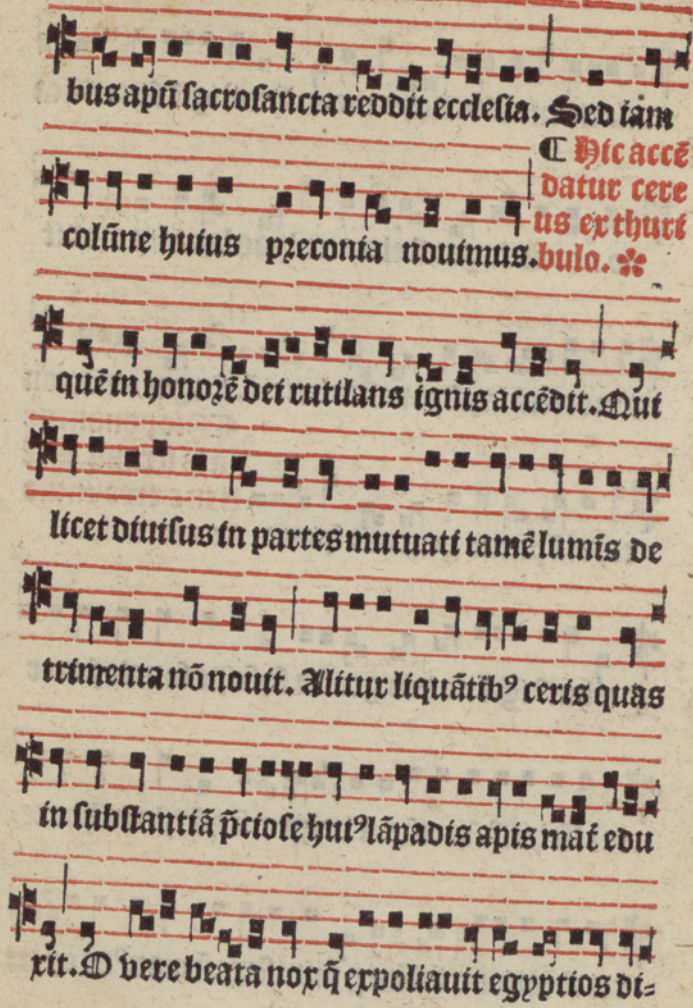 bus apū sacrosancta reddit ecclesia. Sed iam
¶ Hic accē
datur cere
us ex thuri
bulo. ✽
colūne huius preconia nouimus.
quē in honorē dei rutilans ignis accēdit. Qui
licet diuisus in partes mutuati tamē lumīs de
trimenta nō nouit. Alitur liquātibꝰ ceris quas
in substantiā p̄ciose huiꝰ lāpadis apis mat̄ edu
xit. O vere beata nox q̄ expoliauit egyptios di-